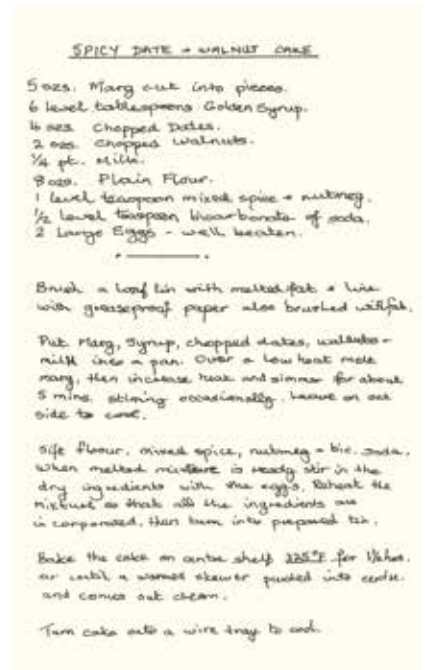 SPICY DATE + WALNUT CAKE
5 ozs. Marg cut into pieces.
6 level tablespoons Golden Syrup.
4 ozs Chopped Dates.
2 ozs. Chopped Walnuts.
1/4 pt. Milk.
8 ozs. Plain Flour.
1 level teaspoon mixed spice + nutmeg.
1/2 level teaspoon bicarbonate of soda.
2 Large Eggs - well beaten.
Brush a loaf tin with melted fat + line
with greaseproof paper also brushed with fat.
Put Marg, Syrup, chopped dates, walnuts +
milk into a pan. Over a low heat melt
marg, then increase heat and simmer for about
5 mins, stirring occasionally. Leave on one
side to cool.
Sift flour, mixed spice, nutmeg + bic. soda.
When melted mixture is ready stir in the
dry ingredients with the eggs. the
mixture so that all the ingredients are
incorporated, then turn into prepared tin.
Bake the cake on centre shelf 325°F for hrs.
or until a warmed skewer pushed into centre
and comes out clean.
Turn cake onto a wire tray to cool.